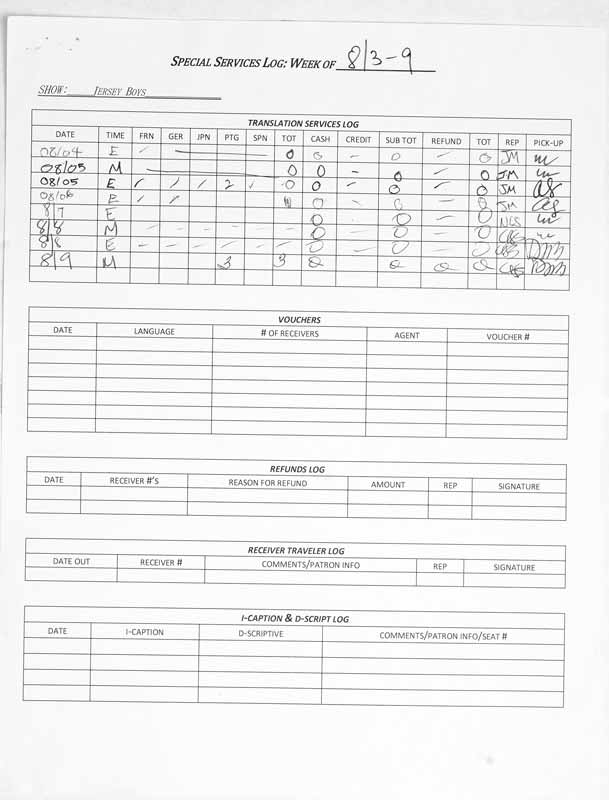 SPECIAL SERVICES LOG: WEEK OF 8/3-9
SHOW: JERSEY BOYS
TRANSLATION SERVICES LOG
DATE TIME FRN GER JPN PTG SPN TOT CASH CREDIT SUB TOT REFUND TOT REP PICK-UP
08/04 E / — 0 0 – 0 – 0 JM
08/05 M — 0 0 – 0 – 0 JM
08/05 E / / / 2 ✓ 0 0 – 0 – 0 JM
08/06 E / / 0 – 0 – 0 JM
8/7 E 0 0 – 0 NGS
8/8 M – – – – – – 0 – 0 – 0
8/8 E – – – – – – 0 – 0 – 0 DMB
8/9 M 3 3 0 0 0 0 DMB
VOUCHERS
DATE LANGUAGE # OF RECEIVERS AGENT VOUCHER #
REFUNDS LOG
DATE RECEIVER #'S REASON FOR REFUND AMOUNT REP SIGNATURE
RECEIVER TRAVELER LOG
DATE OUT RECEIVER # COMMENTS/PATRON INFO REP SIGNATURE
I-CAPTION & D-SCRIPT LOG
DATE I-CAPTION D-SCRIPTIVE COMMENTS/PATRON INFO/SEAT #